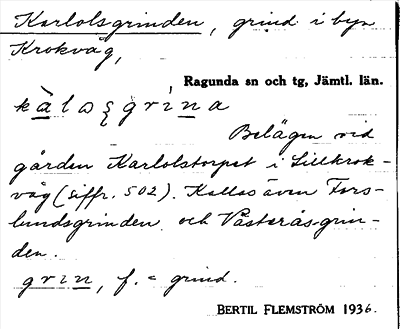 Karlolsgrinden, grind i byn
Krokvåg,
Ragunda sn och tg, Jämtl. län.
Belägen vid
gården Karlolstorpet i Lillkrok-
våg (siffr. 502). Kallas även Fors-
lundsgrinden och Västeråsgrin-
den.
grin, f. = grind.
BERTIL FLEMSTRÖM 1936.